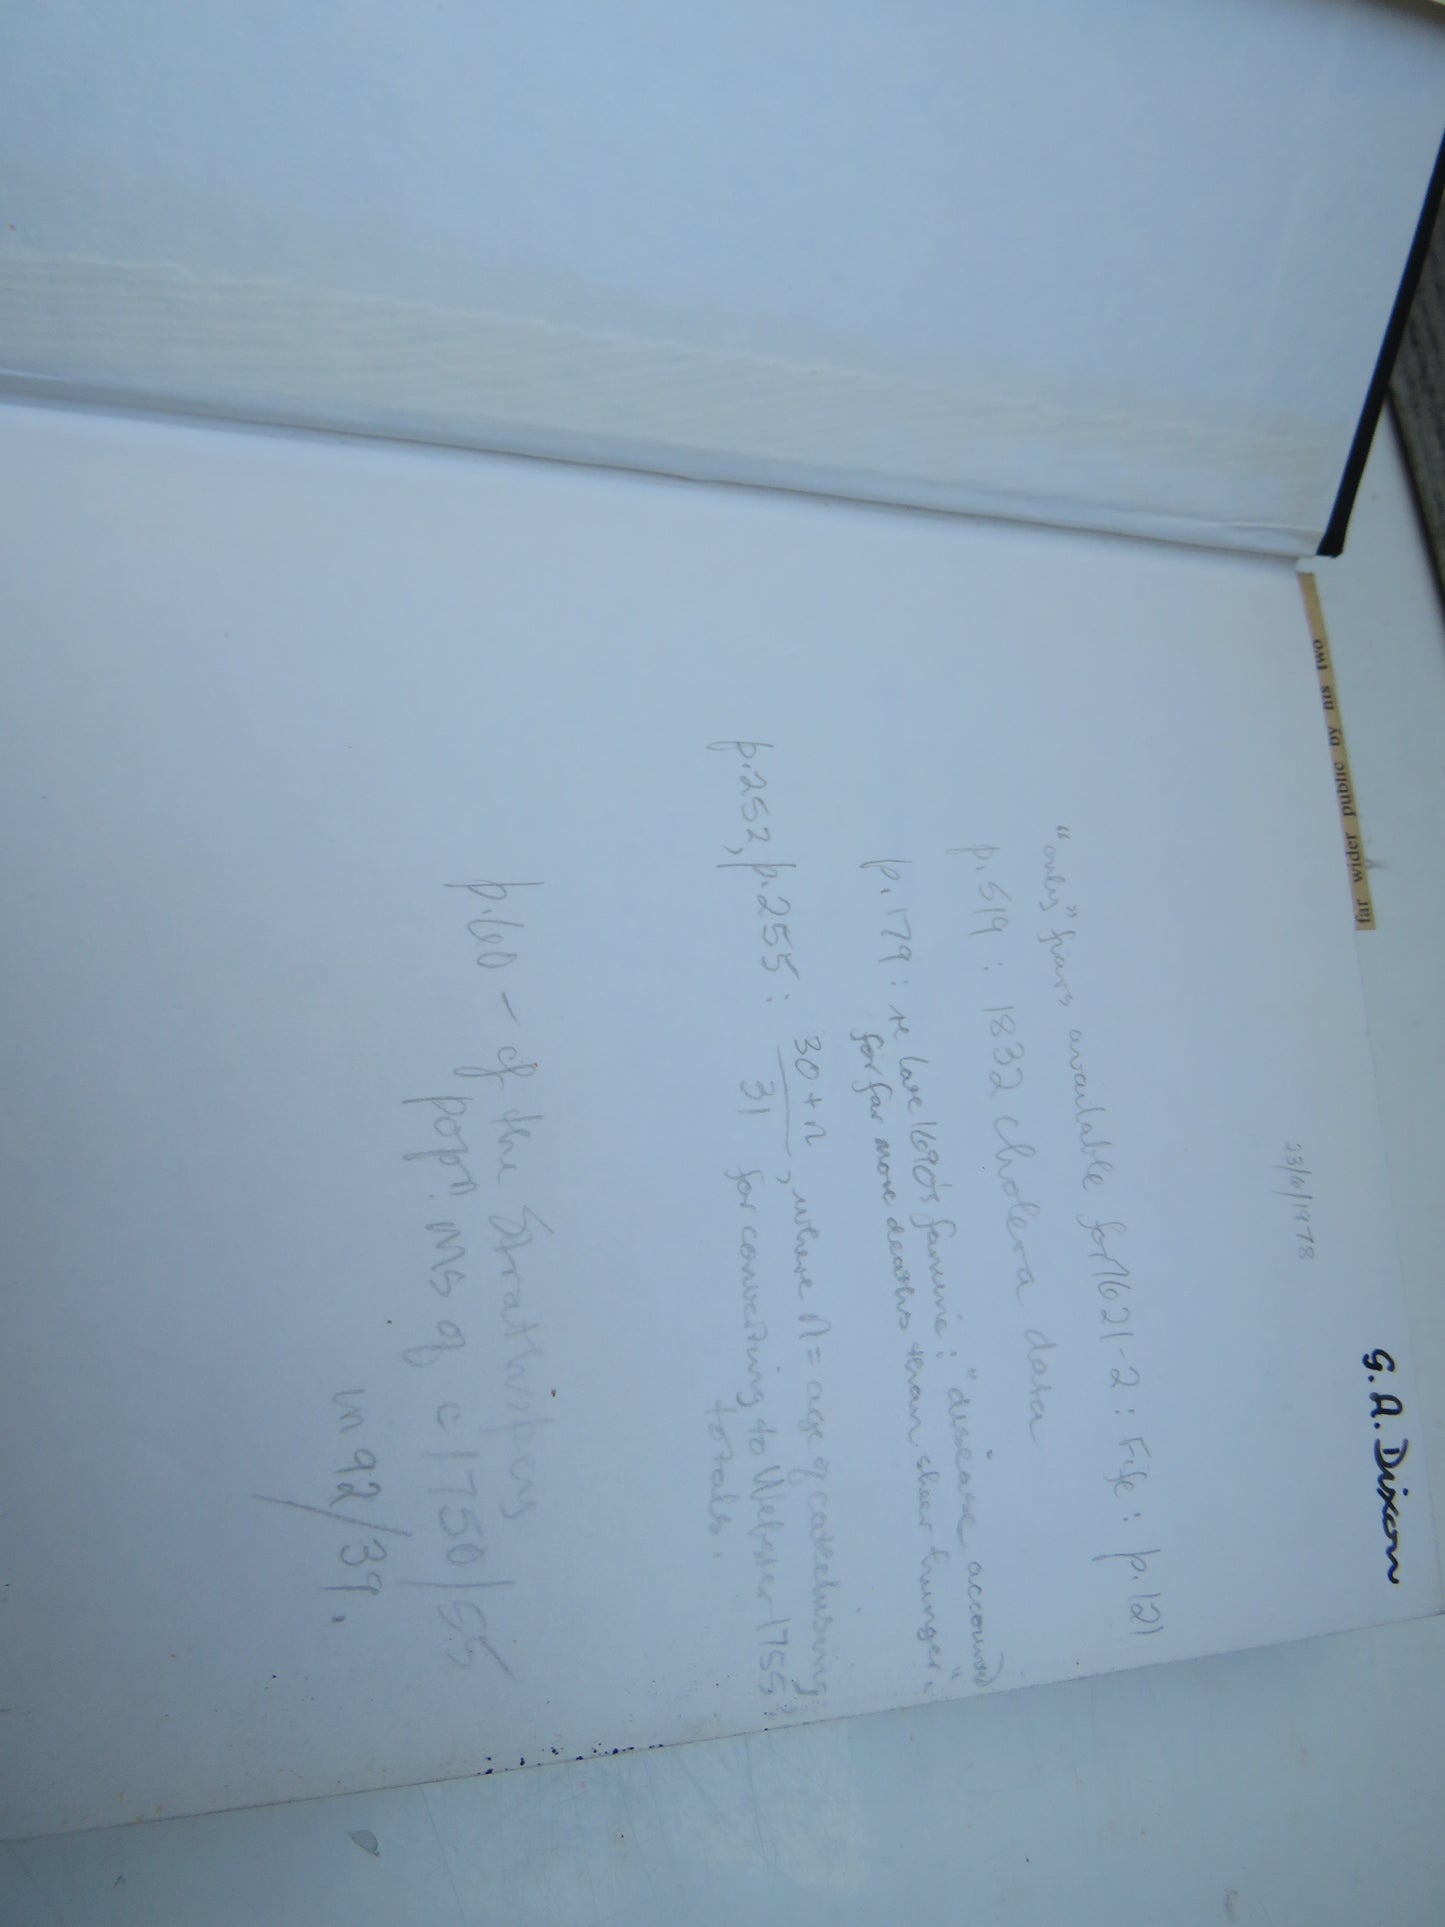 far wider public by his two
G. A. Dixon
23/6/1978
"only" figures available for 1621-2 : Fife : p.121
p.519 : 1832 cholera data
p.179 : re late 1690s famine : "disease accounted
for far more deaths than sheer hunger".
p.252, p.255 : 30+n / 31 , where n = age of catechising
for converting to Webster 1755
totals.
p.60 - cf the Strathspey
popn. MS of c1750/55
in 92/39.